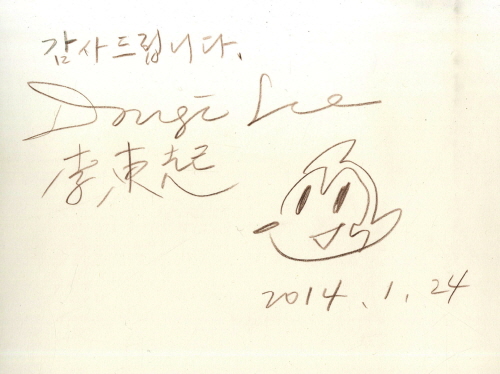 감사드립니다.
Dongi Lee
李東起
2014.1.24